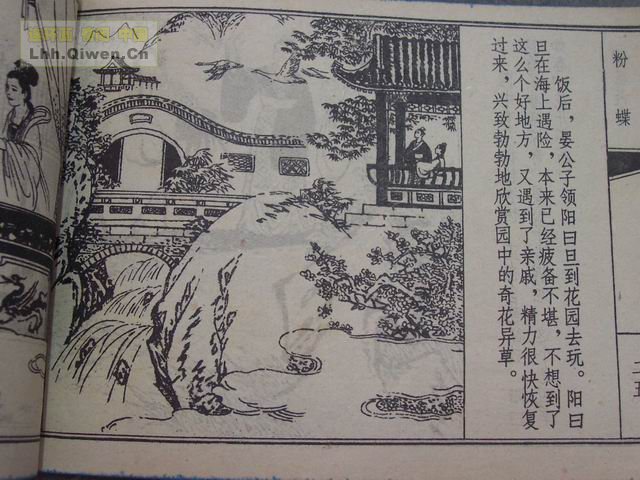 Lhh.Qiwen.Cn
饭后，晏公子领阳曰旦到花园去玩。阳曰
旦在海上遇险，本来已经疲备不堪，不想到了
这么个好地方，又遇到了亲戚，精力很快恢复
过来，兴致勃勃地欣赏园中的奇花异草。
粉蝶